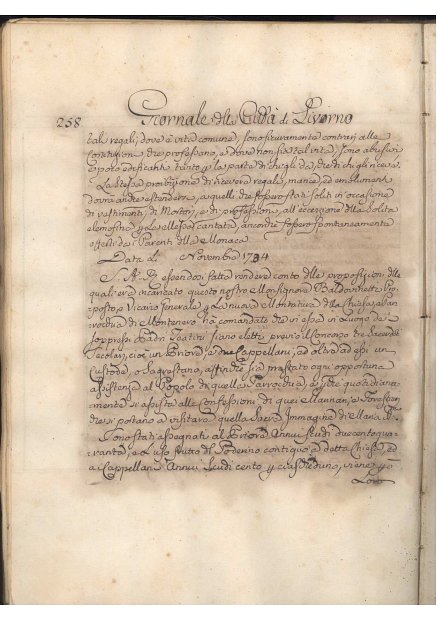 258 Giornale della Città di Livorno
tali regali; dove è vita comune, sono sicuramente contrari alle
Costituzioni, che professano, e dove non siavi tal vita, sono abusivi
e poco edificanti tanto per la parte di chi gli dà, che di chi gli riceve
La stessa proibizione di ricevere regali, mance, ed emolumenti
dovrà anche estendersi, a quelli che fossero stati soliti in occasione
di vestimenti, di Mortori, e di professioni, all'eccezione della solita
elemosina per la Messa cantata, ancorché fossero spontaneamente
offerti da Parenti della Monaca
Data li Novembre 17
S. A. R. essendosi fatta rendere conto delle proposizioni, delle
quali era incaricato questo nostro Monsignore Baldovinetti Pro,,
posto, e Vicario Generale per la nuova Uffiziatura della Chiesa, e Par
rocchia di Montenero ha comandato che in essa in luogo dei
soppressi Padri Teatini siano eletti previo il concorso tre Sacerdoti
Secolari, cioè un Priore, e due Cappellani, ed oltre ad essi un
Custode, o Sagrestano, affinché sia prestato ogni opportuna
assistenza al Popolo di quella Parrocchia, e che quotidiana,,
mente si assista alle Confessioni di quei Paesani, e Forestieri
che si portano a visitare quella Sacra Immagine di Maria
Sono stati assegnati al Priore Annui scudi duecento qua,,
ranta, e l'uso frutto del Podere contiguo a detta Chiesa, ed
a Cappellani Annui scudi cento per ciascheduno, viene
Loro